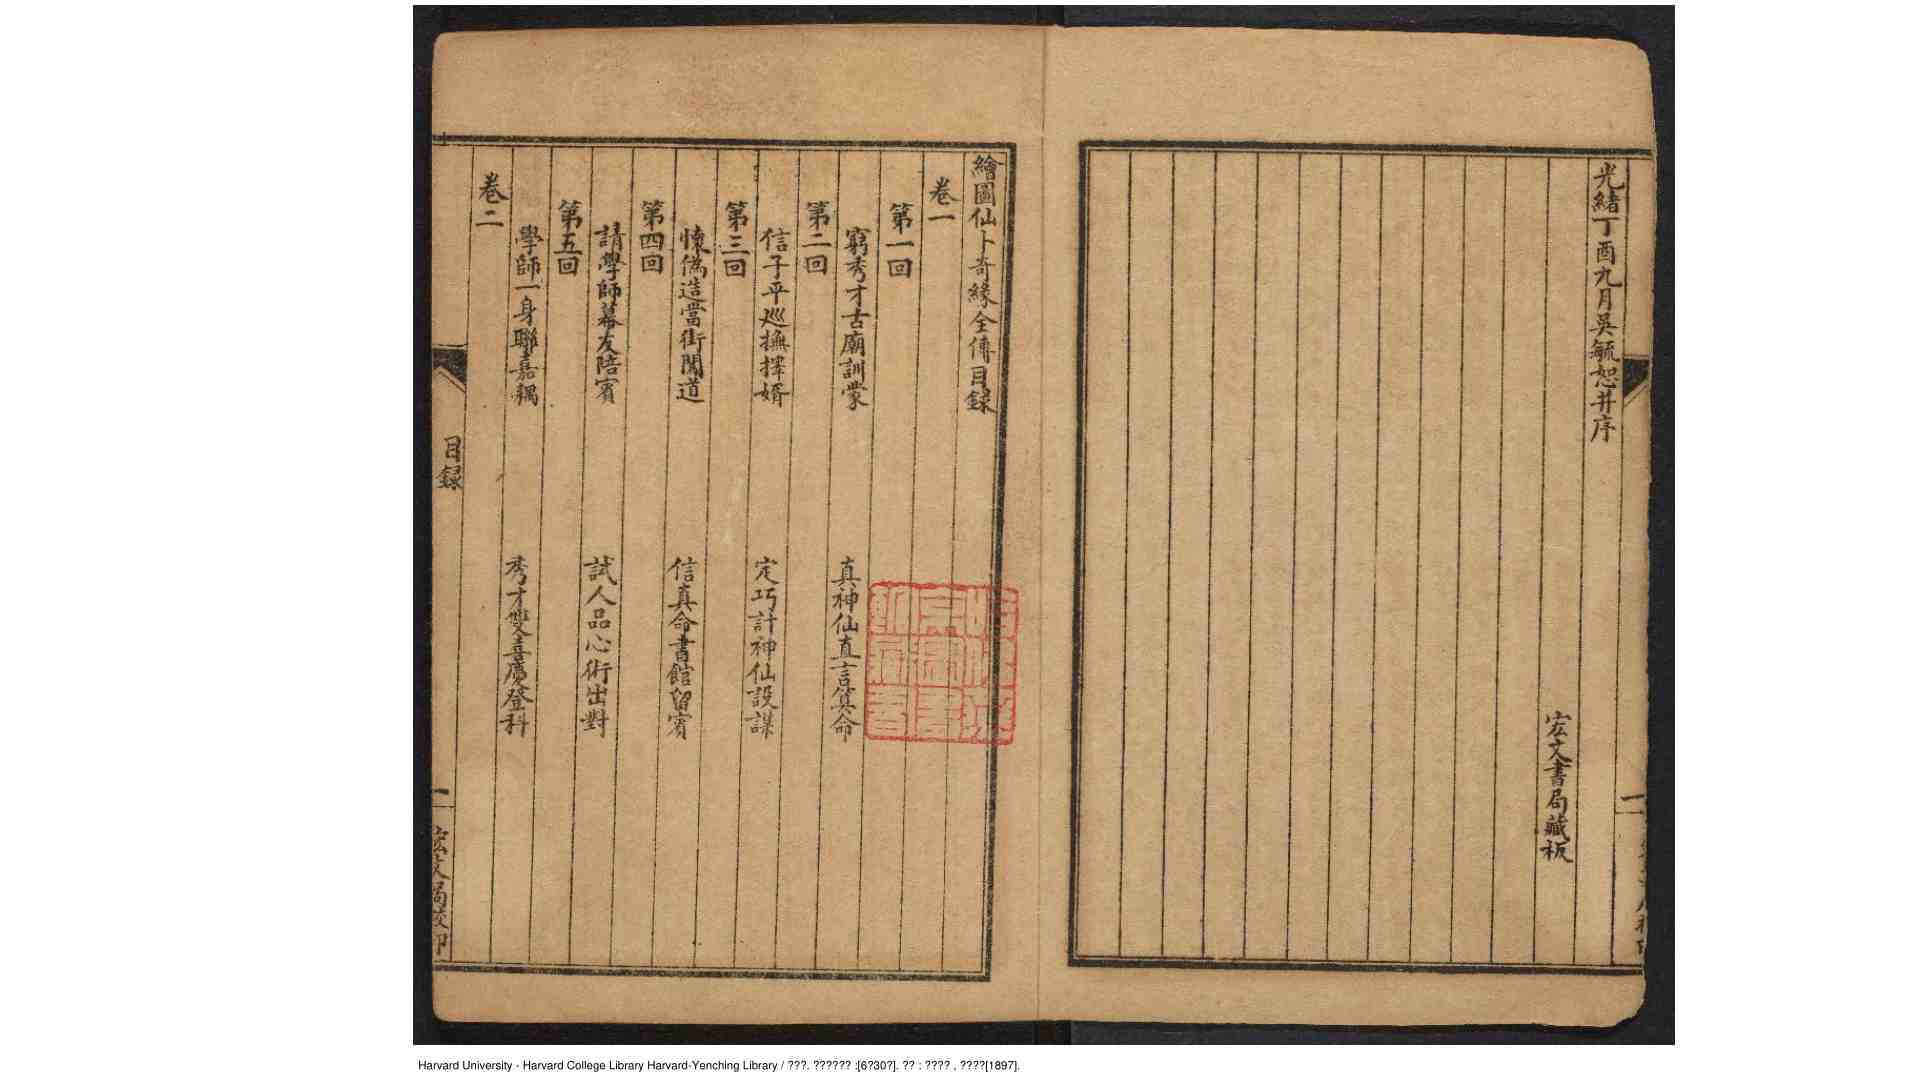 光緒丁酉九月吳毓恕并序
宏文書局藏板
繪圖仙卜奇緣全傳目錄
卷一
第一回
窮秀才古廟訓蒙 真神仙直言算命
第二回
信子平巡撫擇婿 定巧計神仙設謀
第三回
懷偽造當街鬧道 信真命書館留賓
第四回
請學師幕友陪賓 試人品心術出對
第五回
學師一身聯嘉耦 秀才雙喜慶登科
卷二
目錄
一
宏文局校印
Harvard University - Harvard College Library Harvard-Yenching Library / ???. ?????? :[6?30?]. ?? : ???? , ????[1897].